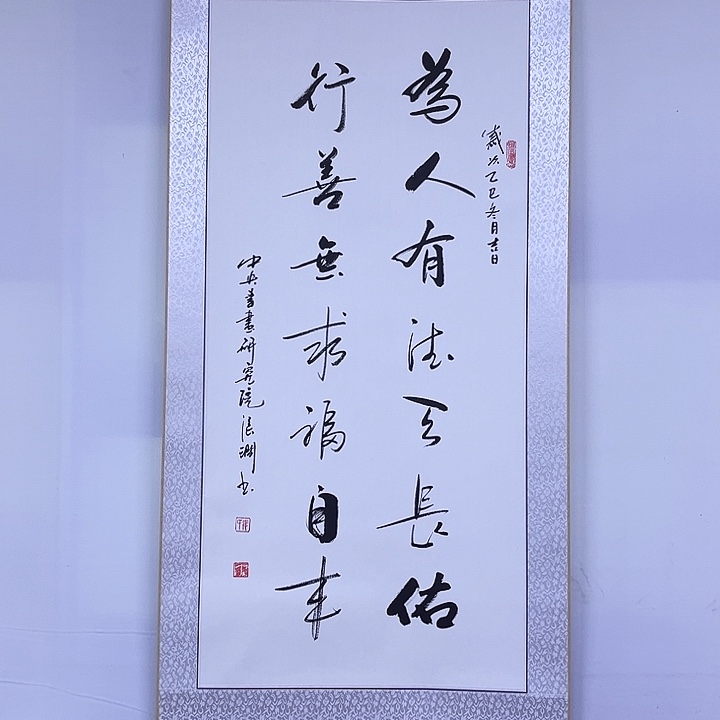 歲次乙巳冬月吉日
為人有德天長佑
行善無求福自來
中央書畫研究院張淵書